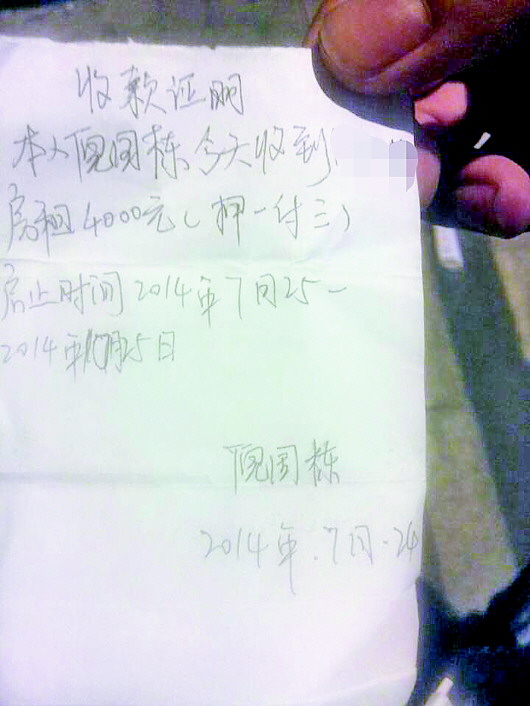 收款证明
本人隗国栋今天收到
房租4000元(押一付三)
启止时间2014年7月25—
2014年10月25日
隗国栋
2014年.7月.24